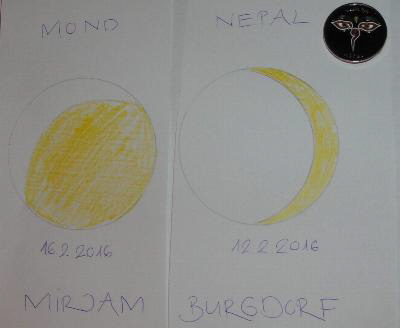 MOND NEPAL
16.2.2016 12.2.2016
MIRJAM BURGDORF